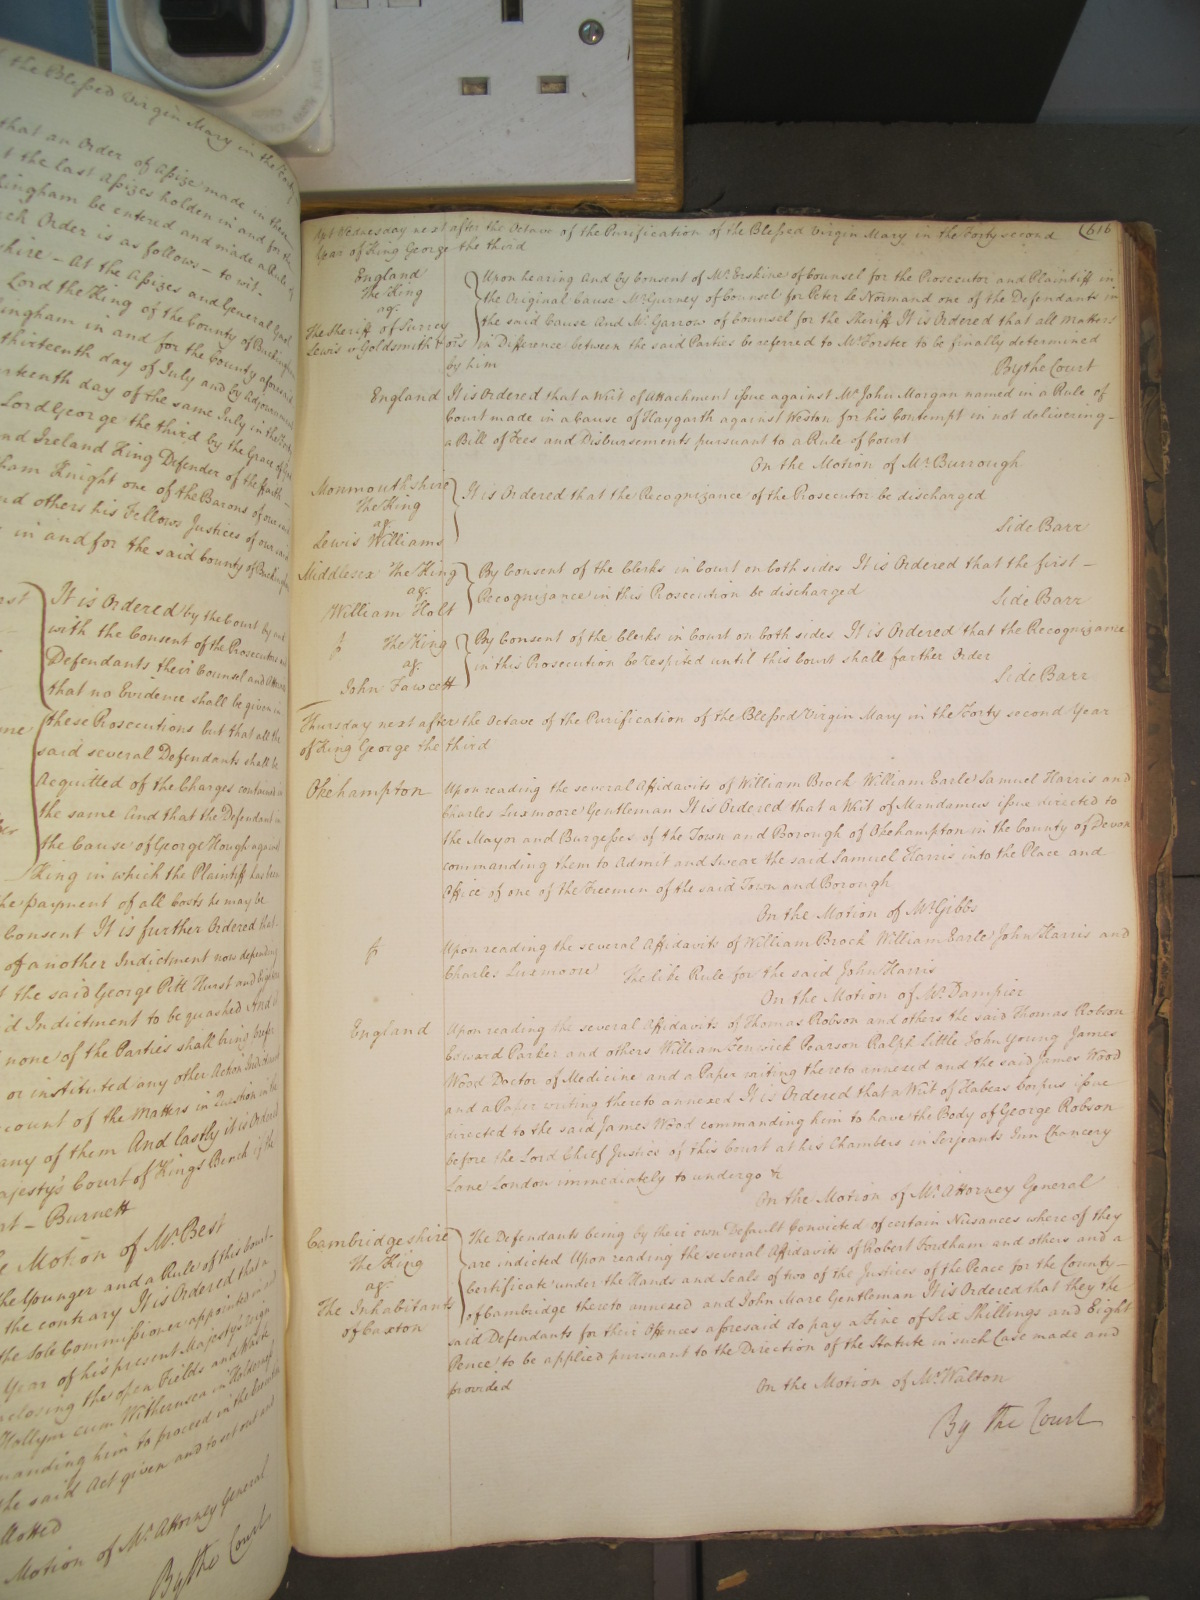 the Blessed Virgin Mary in the forty
that an Order of Assize made in the
t the last Assizes holden in and for the
kingham be entered and made a Rule of
Order is as follows – to wit –
shire – At the Assizes and General Gaol
Lord the King of the County of Buckingham
ingham in and for the County aforesaid
thirteenth day of July and by Adjournment
day of the same July in the
Lord George the third by the Grace of God
nd Ireland King Defender of the faith –
ham Knight one of the Barons of
nd others his Fellows Justices of our said
in and for the said County of Buckingham
It is Ordered by the Court by and
with the Consent of the Prosecutors and
Defendants their Counsel and
that no Evidence shall be given in
these Prosecutions but that all the
said several Defendants shall be
Acquitted of the Charges contained in
the same And that the Defendant in
the Cause of George Hough against
King in which the Plaintiff has been
the payment of all Costs he may be
Consent It is further Ordered that
of another Indictment now depending
t the said George Pitt Hurst and
d Indictment to be quashed And
none of the Parties shall bring
or instituted any other Action Indictment
count of the Matters in Question in the
any of them And lastly it is Ordered
ajesty's Court of Kings Bench if the
rt – Burnett
Motion of Mr. Best
the Younger and a Rule of this Court
the contrary It is Ordered that a
the Sole Commissioner appointed in
Year of his present Majesty's Reign
inclosing the open Fields and
Hollym cum Withernsea in Holderness
manding him to proceed in the
the said Act given and to set out and
llotted
Motion of Mr. Attorney General
By the Court
Wednesday next after the Octave of the Purification of the Blessed Virgin Mary in the Forty second (616
Year of King George the third
England
The King
agt.
The Sheriff of Surrey
Lewis v Goldsmith & ors
Upon hearing And by Consent of Mr. Erskine of Counsel for the Prosecutor and Plaintiff in
the Original Cause Mr. Gurney of Counsel for Peter Le Normand one of the Defendants in
the said Cause And Mr. Garrow of Counsel for the Sheriff It is Ordered that all Matters
in Difference between the said Parties be referred to Mr. Forster to be finally determined
by him
By the Court
England It is Ordered that a Writ of Attachment issue against Mr. John Morgan named in a Rule of
Court made in a Cause of Haygarth against Weston for his Contempt in not delivering –
a Bill of Fees and Disbursements pursuant to a Rule of Court
On the Motion of Mr. Burrough
Monmouthshire
The King
agt.
Lewis Williams
It is Ordered that the Recognizance of the Prosecutor be discharged
Side Barr
Middlesex The King
agt.
William Holt
By Consent of the Clerks in Court on both sides It is Ordered that the first –
Recognizance in this Prosecution be discharged
Side Barr
The King
agt.
John Fawcett
By Consent of the Clerks in Court on both sides It is Ordered that the Recognizance
in this Prosecution be respited until this Court shall farther Order
Side Barr
Thursday next after the Octave of the Purification of the Blessed Virgin Mary in the Forty second Year
of King George the third
Okehampton Upon reading the several Affidavits of William Brock William Earle Samuel Harris and
Charles Luxmoore Gentleman It is Ordered that a Writ of Mandamus issue directed to
the Mayor and Burgesses of the Town and Borough of Okehampton in the County of Devon
commanding them to admit and swear the said Samuel Harris into the Place and
Office of one of the Freemen of the said Town and Borough
On the Motion of Mr. Gibbs
Upon reading the several Affidavits of William Brock William Earle John Harris and
Charles Luxmoore The like Rule for the said John Harris
On the Motion of Mr. Dampier
England Upon reading the several Affidavits of Thomas Robson and others the said Thomas Robson
Edward Parker and others William Fenwick Pearson Ralph Little John Young James
Wood Doctor of Medicine and a Paper writing thereto annexed and the said James Wood
and a Paper writing thereto annexed It is Ordered that a Writ of Habeas Corpus issue
directed to the said James Wood commanding him to have the Body of George Robson
before the Lord Chief Justice of this Court at his Chambers in Serjeants Inn Chancery
Lane London immediately to undergo &c
On the Motion of Mr. Attorney General
Cambridgeshire
The King
agt.
The Inhabitants
of Caxton
The Defendants being by their own Default Convicted of certain Nusances where of they
are indicted Upon reading the several Affidavits of Robert Fordham and others and a
Certificate under the Hands and Seals of two of the Justices of the Peace for the County –
of Cambridge thereto annexed and John Mare Gentleman It is Ordered that they the
said Defendants for their Offences aforesaid do pay a Fine of Six Shillings and Eight
Pence to be applied pursuant to the Direction of the Statute in such Case made and
provided
On the Motion of Mr. Walton
By the Court